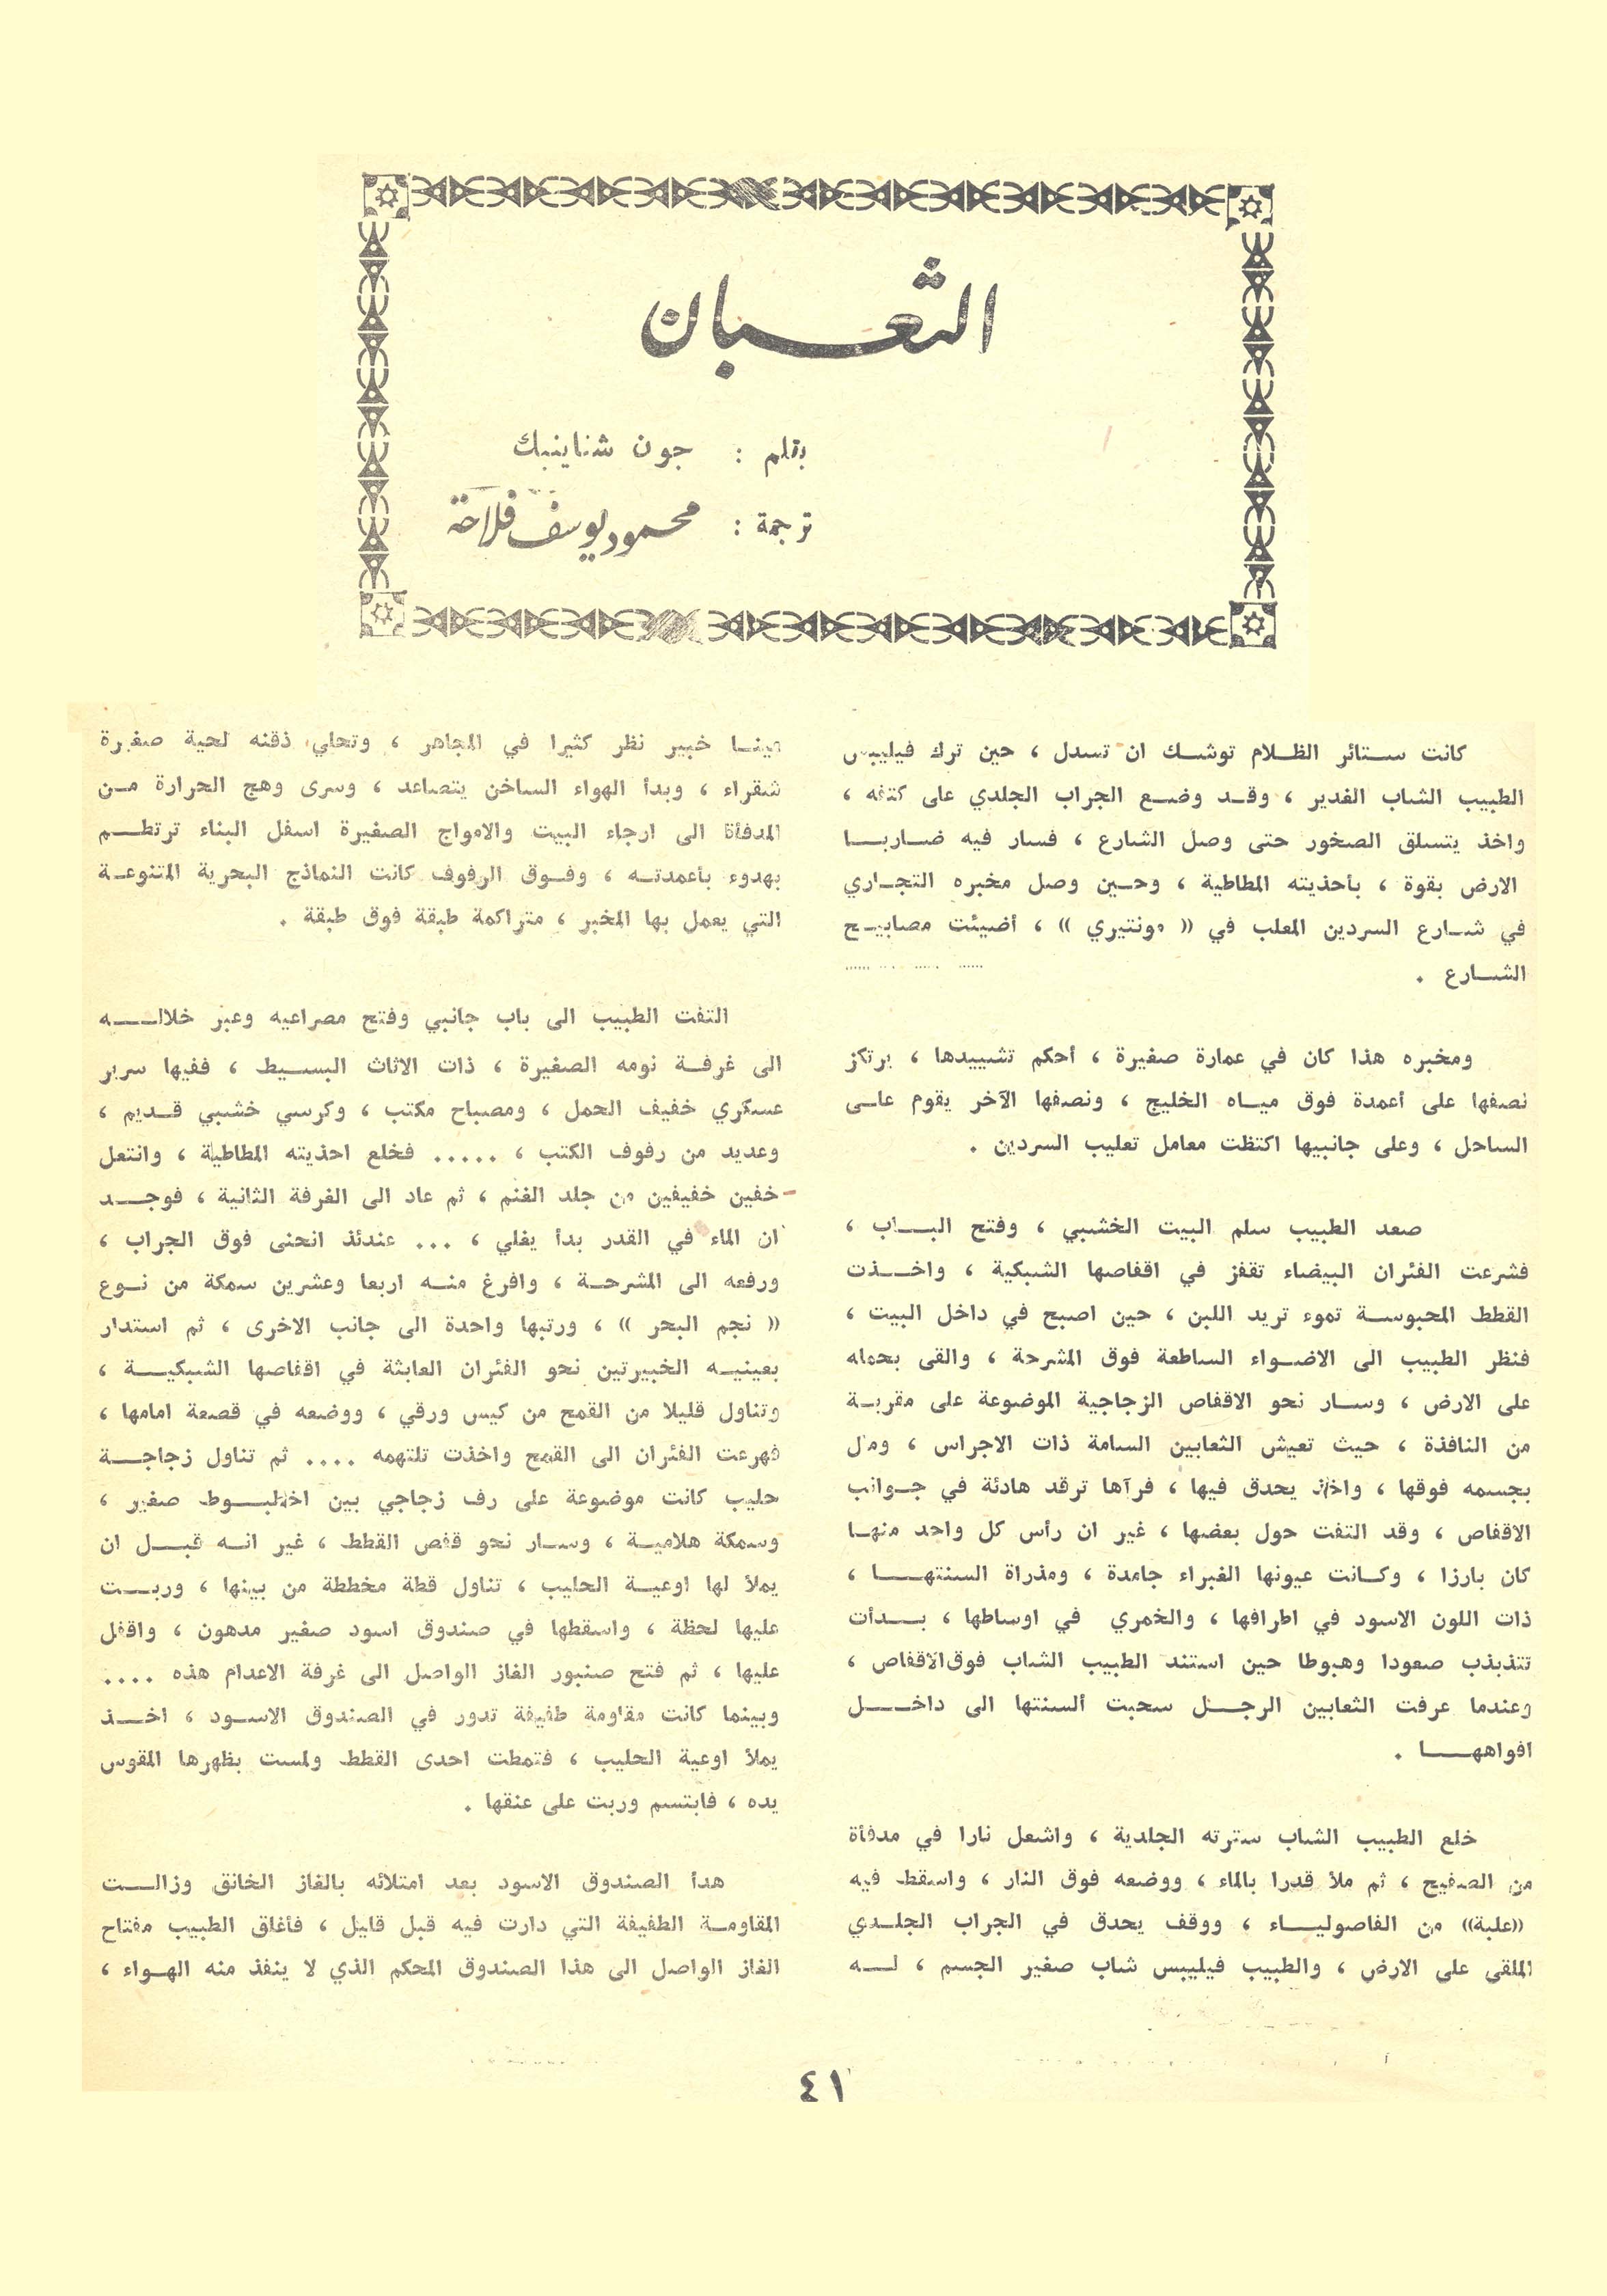 الثعبان
بقلم : جون شتاينبك
ترجمة : محمود يوسف فلاحة
كانت ستائر الظلام توشك ان تسدل ، حين ترك فيليبس
الطبيب الشاب الغدير ، وقد وضع الجراب الجلدي على كتفه ،
واخذ يتسلق الصخور حتى وصل الشارع ، فسار فيه ضاربا
الارض بقوة ، بأحذيته المطاطية ، وحين وصل مخبره التجاري
في شارع السردين المعلب في (( مونتيري )) ، أضيئت مصابيح
الشارع .
ومخبره هذا كان في عمارة صغيرة ، أحكم تشييدها ، يرتكز
نصفها على أعمدة فوق مياه الخليج ، ونصفها الآخر يقوم على
الساحل ، وعلى جانبيها اكتظت معامل تعليب السردين .
صعد الطبيب سلم البيت الخشبي ، وفتح الباب ،
فشرعت الفئران البيضاء تقفز في اقفاصها الشبكية ، واخذت
القطط المحبوسة تموء تريد اللبن ، حين اصبح في داخل البيت ،
فنظر الطبيب الى الاضواء الساطعة فوق المشرحة ، والقى بحمله
على الارض ، وسار نحو الاقفاص الزجاجية الموضوعة على مقربة
من النافذة ، حيث تعيش الثعابين السامة ذات الاجراس ، ومال
بجسمه فوقها ، واخذ يحدق فيها ، فرآها ترقد هادئة في جوانب
الاقفاص ، وقد التفت حول بعضها ، غير ان رأس كل واحد منها
كان بارزا ، وكانت عيونها الغبراء جامدة ، ومذراة السنتها ،
ذات اللون الاسود في اطرافها ، والخمري في اوساطها ، بدأت
تتذبذب صعودا وهبوطا حين استند الطبيب الشاب فوق الاقفاص ،
وعندما عرفت الثعابين الرجل سحبت ألسنتها الى داخل
افواهها .
خلع الطبيب الشاب سترته الجلدية ، واشعل نارا في مدفأة
من الصفيح ، ثم ملأ قدرا بالماء ، ووضعه فوق النار ، واسقط فيه
((علبة)) من الفاصولياء ، ووقف يحدق في الجراب الجلدي
الملقى على الارض ، والطبيب فيليبس شاب صغير الجسم ، له
عينا خبير نظر كثيرا في المجاهر ، وتحلي ذقنه لحية صغيرة
شقراء ، وبدأ الهواء الساخن يتصاعد ، وسرى وهج الحرارة من
المدفأة الى ارجاء البيت والامواج الصغيرة اسفل البناء ترتطم
بهدوء بأعمدته ، وفوق الرفوف كانت النماذج البحرية المتنوعة
التي يعمل بها المخبر ، متراكمة طبقة فوق طبقة .
التفت الطبيب الى باب جانبي وفتح مصراعيه وعبر خلاله
الى غرفة نومه الصغيرة ، ذات الاثاث البسيط ، ففيها سرير
عسكري خفيف الحمل ، ومصباح مكتب ، وكرسي خشبي قديم ،
وعديد من رفوف الكتب ، ..... فخلع احذيته المطاطية ، وانتعل
خفين خفيفين من جلد الغنم ، ثم عاد الى الغرفة الثانية ، فوجد
ان الماء في القدر بدأ يغلي ، ... عندئذ انحنى فوق الجراب ،
ورفعه الى المشرحة ، وافرغ منه اربعا وعشرين سمكة من نوع
(( نجم البحر )) ، ورتبها واحدة الى جانب الاخرى ، ثم استدار
بعينيه الخبيرتين نحو الفئران العابثة في اقفاصها الشبكية ،
وتناول قليلا من القمح من كيس ورقي ، ووضعه في قصعة امامها ،
فهرعت الفئران الى القمح واخذت تلتهمه .... ثم تناول زجاجة
حليب كانت موضوعة على رف زجاجي بين اخطبوط صغير ،
وسمكة هلامية ، وسار نحو قفص القطط ، غير انه قبل ان
يملأ لها اوعية الحليب ، تناول قطة مخططة من بينها ، وربت
عليها لحظة ، واسقطها في صندوق اسود صغير مدهون ، واقفل
عليها ، ثم فتح صنبور الغاز الواصل الى غرفة الاعدام هذه ....
وبينما كانت مقاومة طفيفة تدور في الصندوق الاسود ، اخذ
يملأ اوعية الحليب ، فتمطت احدى القطط ولمست بظهرها المقوس
يده ، فابتسم وربت على عنقها .
هدأ الصندوق الاسود بعد امتلائه بالغاز الخانق وزالت
المقاومة الطفيفة التي دارت فيه قبل قليل ، فأغلق الطبيب مفتاح
الغاز الواصل الى هذا الصندوق المحكم الذي لا ينفذ منه الهواء ،
٤١